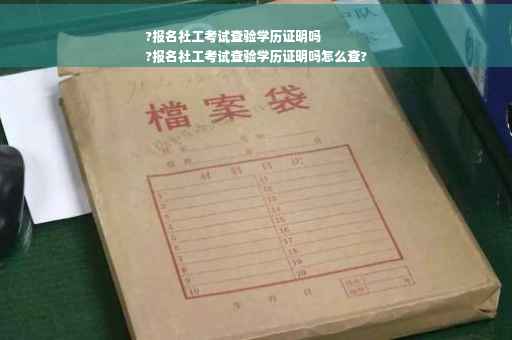 ?报名社工考试查验学历证明吗
?报名社工考试查验学历证明吗怎么查?
檔案袋
材料目次
1 11
2 12
3 13
4 14
5 15
6 16
7 17
8 18
9 19
10 20
年 月 日